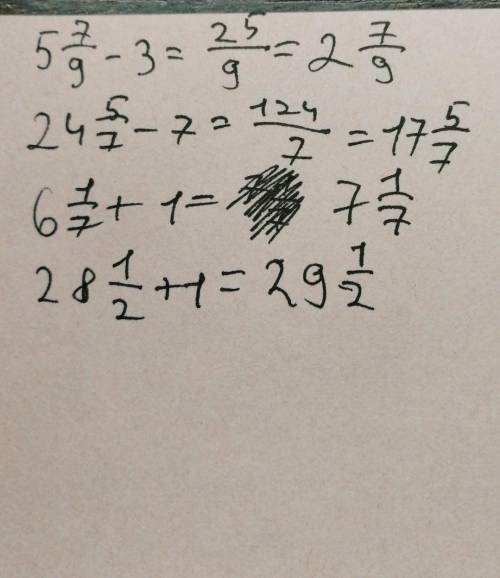 5 7/9 - 3 = 25/9 = 2 7/9
24 5/7 - 7 = 124/7 = 17 5/7
6 1/7 + 1 = 7 1/7
28 1/2 + 1 = 29 1/2